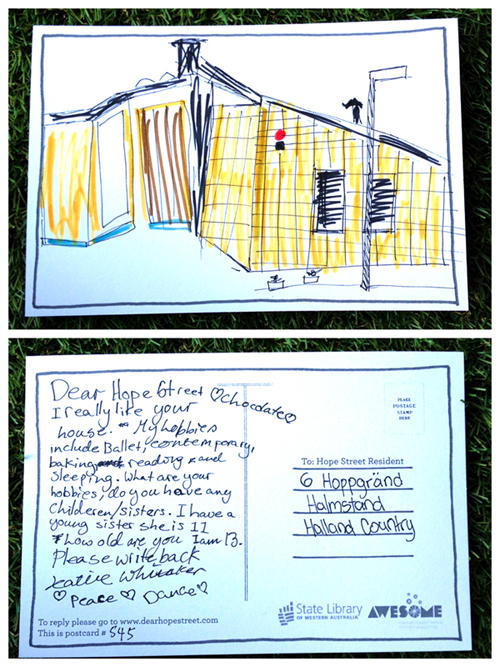 Dear Hope Street ♡Chocolate♡
I really like your
house. My hobbies
include Ballet, contemporary,
baking reading and
Sleeping. What are your
hobbies, do you have any
Childeren/sisters. I have a
young sister she is 11
how old are you I am 13.
Please write back
♡ Peace ♡ Dance♡
To reply please go to www.dearhopestreet.com
This is postcard # 545
PLACE
POSTAGE
STAMP
HERE
To: Hope Street Resident
6 Hoppgränd
Halmstand
Halland Country
State Library
OF WESTERN AUSTRALIA
AWESOME